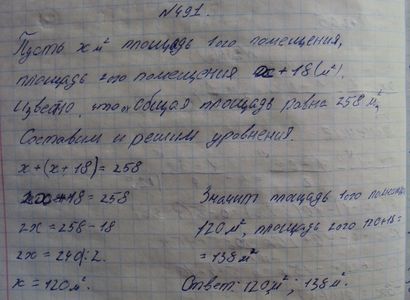 №491.
Пусть x м² площадь 1ого помещения,
площадь 2ого помещения x+18 (м²).
Известно, что общая площадь равна 258 м²,
Составим и решим уравнения.
x+(x+18)=258
2x+18=258
2x=258-18
2x=240:2.
x=120 м².
Значит площадь 1ого помещ
120 м², площадь 2ого 120+18=
=138 м²
Ответ: 120 м²; 138 м².